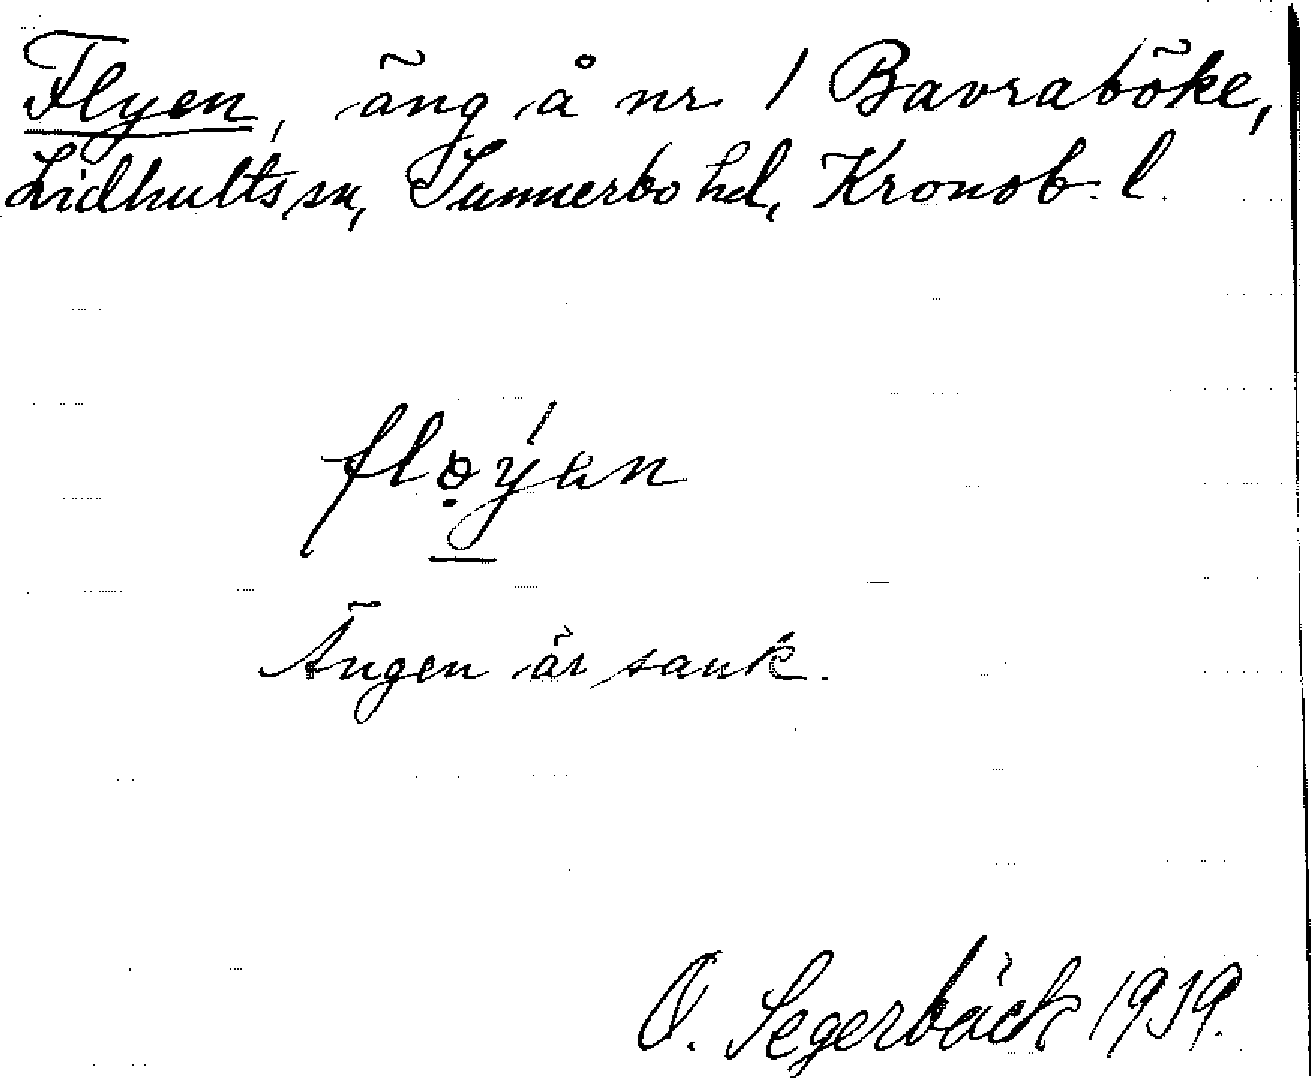 Flyen, äng å nr 1 Bavraböke,
Lidhults sn, Sunnerbo hd, Kronob. l.
Ängen är sank.
O. Segerbäck 1939.